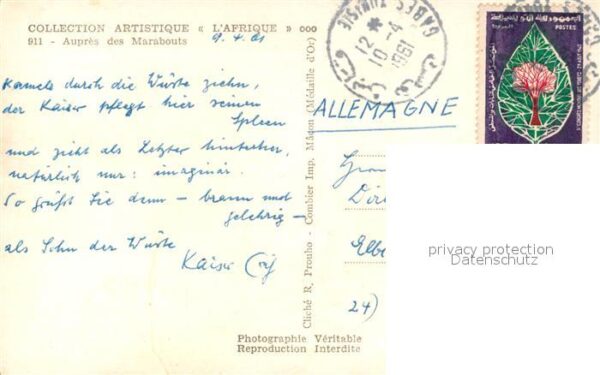 COLLECTION ARTISTIQUE « L'AFRIQUE » ooo
911 - Auprès des Marabouts
9.4.61
Kamels durch die Wüste ziehn,
der Kaiser pflegt hier seinen
Spleen
und zieht als Letzter hinterher,
natürlich nur: imaginär.
So grüßt Sie denn – braun und
gelehrig –
als Sohn der Wüste
Kaiser
Cliché R. Prouho - Combier Imp. Mâcon (Médaille d'Or)
Photographie Véritable
Reproduction Interdite
GABES TUNISIE
12 *
10 - 4
1961
POSTES
ALLEMAGNE
Elbe
24)
privacy protection
Datenschutz